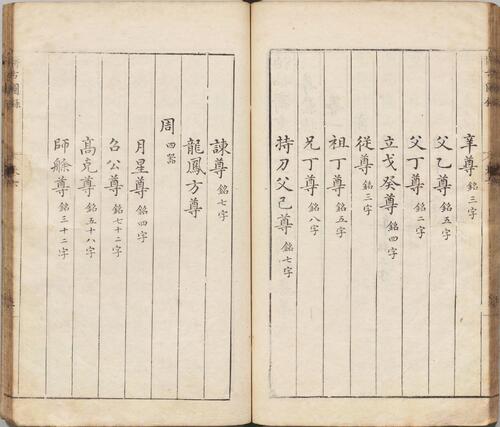 辛尊 銘三字
父乙尊 銘五字
父丁尊 銘二字
立戈癸尊 銘四字
從尊 銘三字
祖丁尊 銘五字
兄丁尊 銘八字
持刀父己尊 銘七字
諫尊 銘七字
龍鳳方尊
周 四器
月星尊 銘四字
召公尊 銘七十二字
高克尊 銘五十八字
師艅尊 銘三十二字